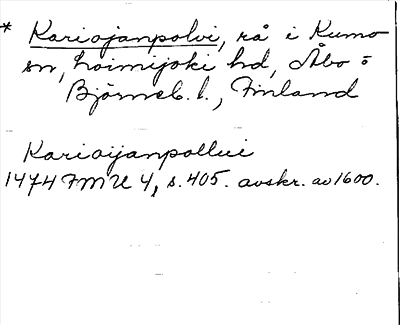 * Kariojanpolvi, rå i Kumo
sn, Loimijoki hd, Åbo o
Björneb. l., Finland
Karioijanpollui
1474 FMU 4, s. 405. avskr. av 1600.